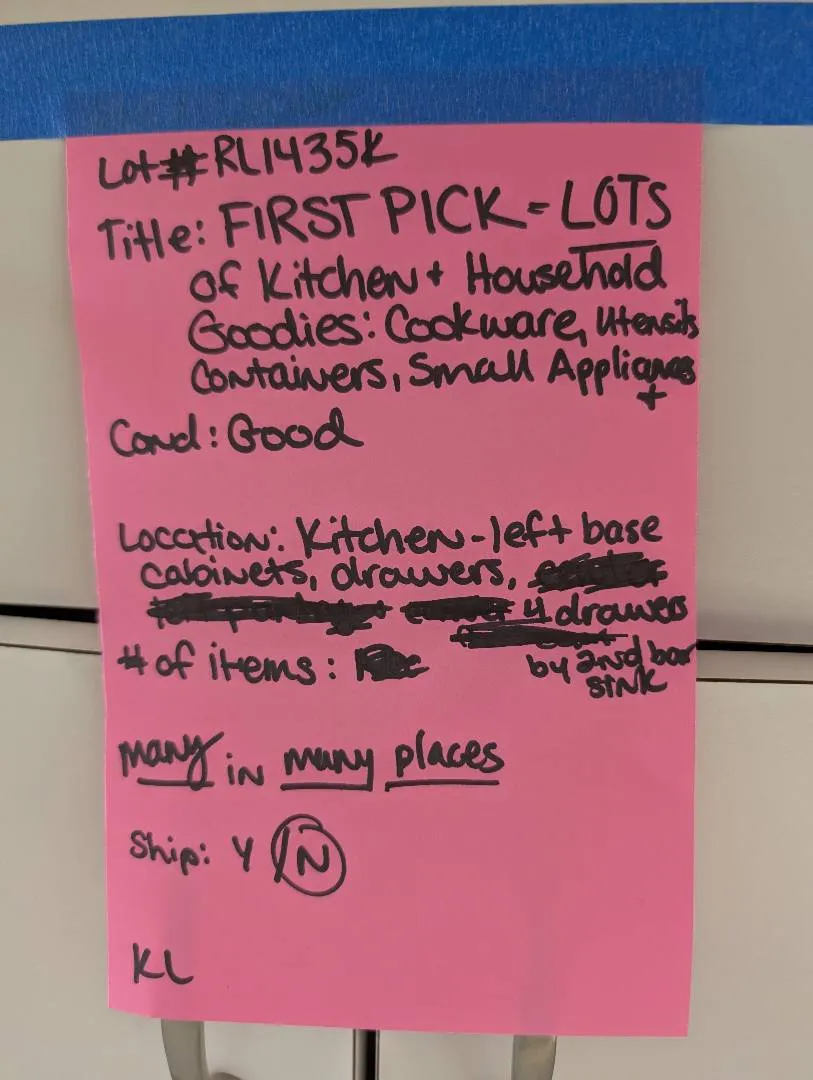 Lot# RL1435K
Title: FIRST PICK - LOTS
of Kitchen + Household
Goodies: Cookware, Utensils
Containers, Small Appliances
+
Cond: Good
Location: Kitchen-left base
cabinets, drawers,
4 drawers
by 2nd bar
sink
# of items:
many in many places
Ship: Y N
KL